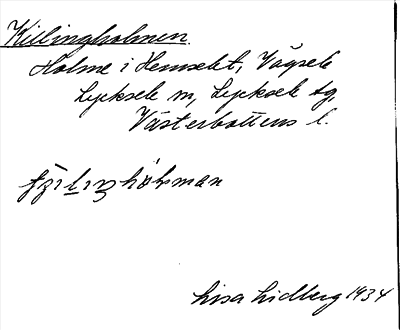 Killingholmen.
Holme i Hemsekt, Vägsele
Lycksele sn, Lycksele tg,
Västerbottens l.
Lisa Lidberg 1934